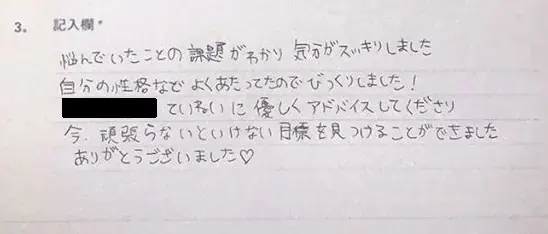 3. 記入欄*
悩んでいたことの課題がわかり 気分がスッキリしました
自分の性格など よくあたってたので びっくりしました!
ていねいに 優しく アドバイスしてくださり
今、頑張らないといけない 目標を見つけることができました
ありがとうございました♡